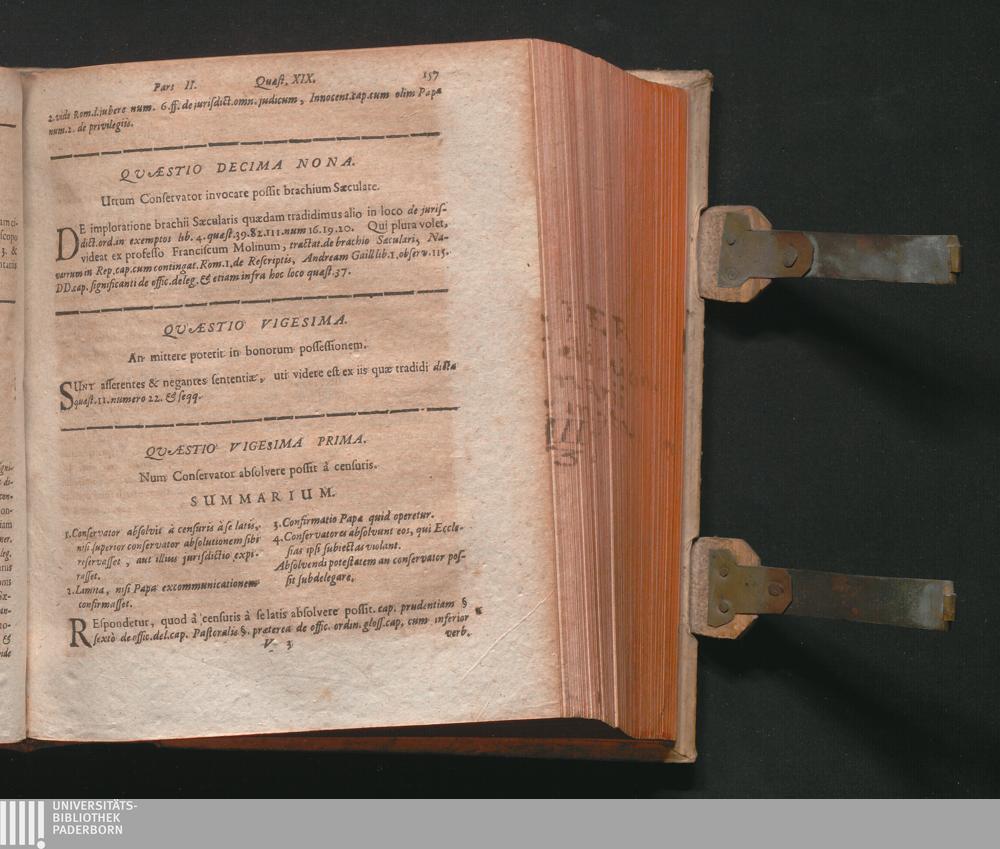 Pars II. Quæst. XIX. 157
2. vidi Rom. l. jubere num. 6. ff. de jurisdict. omn. judicum, Innocent. cap. cum olim Papa
num. 2. de privilegiis.
QVÆSTIO DECIMA NONA.
Utrum Conservator invocare possit brachium Sæculare.
DE imploratione brachii Sæcularis quædam tradidimus alio in loco de juris-
dict. ord. in exemptos lib. 4. quæst. 39. 82. 111. num 16. 19. 20. Qui plura volet,
videat ex professo Franciscum Molinum, tractat. de brachio Sæculari, Na-
varrum in Rep. cap. cum contingat. Rom. 1. de Rescriptis, Andream Gaill lib. 1. observ. 115.
DD. cap. significanti de offic. deleg. & etiam infra hoc loco quæst 37.
QVÆSTIO VIGESIMA.
An mittere poterit in bonorum possessionem.
SUNT asserentes & negantes sententiæ, uti videre est ex iis quæ tradidi dicta
quæst. 11. numero 22. & seqq.
QVÆSTIO VIGESIMA PRIMA.
Num Conservator absolvere possit à censuris.
SUMMARIUM.
1. Conservator absolvit à censuris à se latis,
nisi superior conservator absolutionem sibi
reservasset, aut illius jurisdictio expi-
rasset.
2. Limita, nisi Papa excommunicationem
confirmasset.
3. Confirmatio Papæ quid operetur.
4. Conservatores absolvunt eos, qui Eccle-
sias ipsi subiectas violant.
Absolvendi potestatem an conservator pos-
sit subdelegare.
REspondetur, quod à censuris à se latis absolvere possit. cap. prudentiam §
sextò de offic. del. cap. Pastoralis §. præterea de offic. ordin. gloss. cap. cum inferior
V 3 verb.
UNIVERSITÄTS-
BIBLIOTHEK
PADERBORN